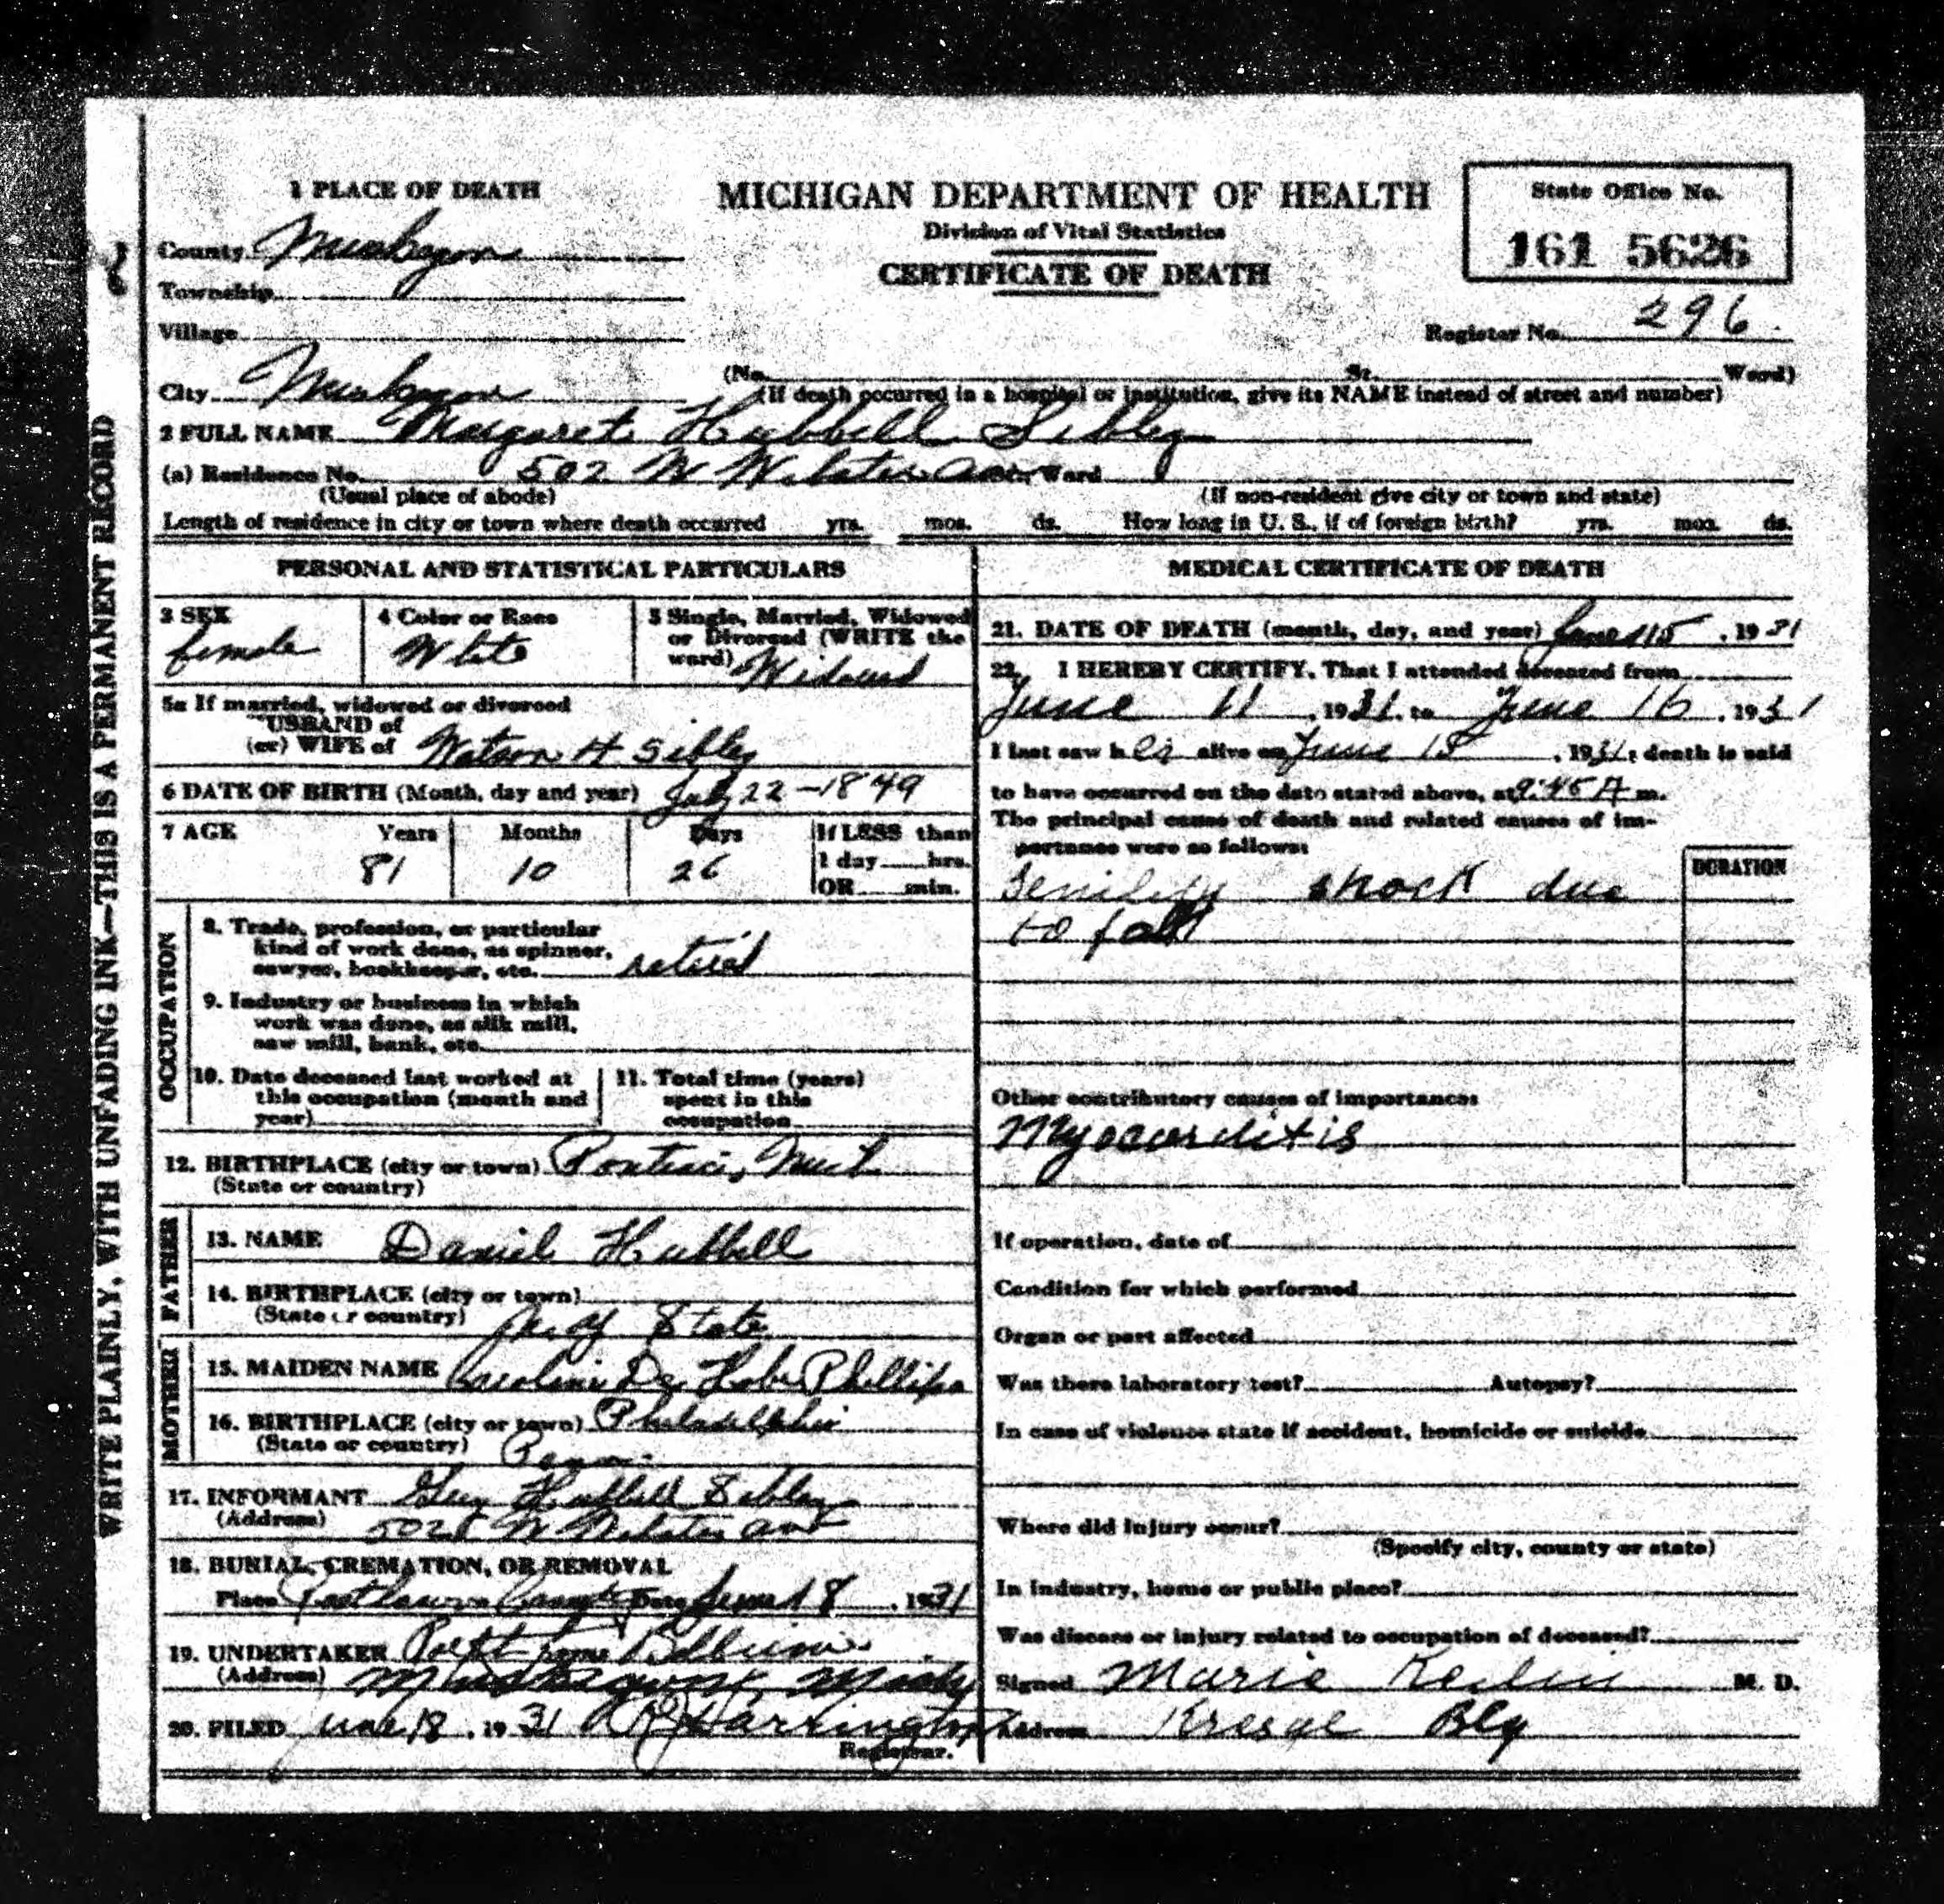 1 PLACE OF DEATH
MICHIGAN DEPARTMENT OF HEALTH
Division of Vital Statistics
CERTIFICATE OF DEATH
State Office No.
161 5626
County Muskegon
Township
Village
Register No. 296.
City Muskegon (No. St. Ward)
(If death occurred in a hospital or institution, give its NAME instead of street and number)
2 FULL NAME Margaret Hubbell Sibley
(a) Residence No. 502 W Webster Ave St., Ward
(Usual place of abode) (If non-resident give city or town and state)
Length of residence in city or town where death occurred yrs. mos. ds. How long in U. S., if of foreign birth? yrs. mos. ds.
WRITE PLAINLY, WITH UNFADING INK—THIS IS A PERMANENT RECORD
PERSONAL AND STATISTICAL PARTICULARS
3 SEX
female
4 Color or Race
White
5 Single, Married, Widowed
or Divorced (WRITE the
word) Widowed
5a If married, widowed or divorced
USBAND of
(or) WIFE of Watson H Sibley
6 DATE OF BIRTH (Month, day and year) July 22 - 1849
7 AGE Years Months Days If LESS than
81 10 26 1 day hrs.
OR min.
OCCUPATION
8. Trade, profession, or particular
kind of work done, as spinner,
sawyer, bookkeeper, etc. retired
9. Industry or business in which
work was done, as silk mill,
saw mill, bank, etc.
10. Date deceased last worked at
this occupation (month and
year)
11. Total time (years)
spent in this
occupation
12. BIRTHPLACE (city or town) Pontiac, Mich
(State or country)
FATHER
13. NAME Daniel Hubbell
14. BIRTHPLACE (city or town)
(State or country) N.Y State
MOTHER
15. MAIDEN NAME Caroline Phillips
16. BIRTHPLACE (city or town) Philadelphia
(State or country) Penn.
17. INFORMANT Guy Hubbell Sibley
(Address) 502 W Webster Ave
18. BURIAL, CREMATION, OR REMOVAL
Place Date June 18, 1931
19. UNDERTAKER
(Address) Muskegon, Mich
20. FILED June 18, 1931 Harrington
Registrar.
MEDICAL CERTIFICATE OF DEATH
21. DATE OF DEATH (month, day, and year) June, 1931
22. I HEREBY CERTIFY, That I attended deceased from
June 11, 1931, to June 16, 1931
I last saw her alive on June 15, 1931; death is said
to have occurred on the date stated above, at 9:45 A m.
The principal cause of death and related causes of im-
portance were as follows:
DURATION
Senility shock due
to fall
Other contributory causes of importance:
Myocarditis
If operation, date of
Condition for which performed
Organ or part affected
Was there laboratory test? Autopsy?
In case of violence state if accident, homicide or suicide
Where did injury occur?
(Specify city, county or state)
In industry, home or public place?
Was disease or injury related to occupation of deceased?
Signed Marie M. D.
Address Kresge Blg